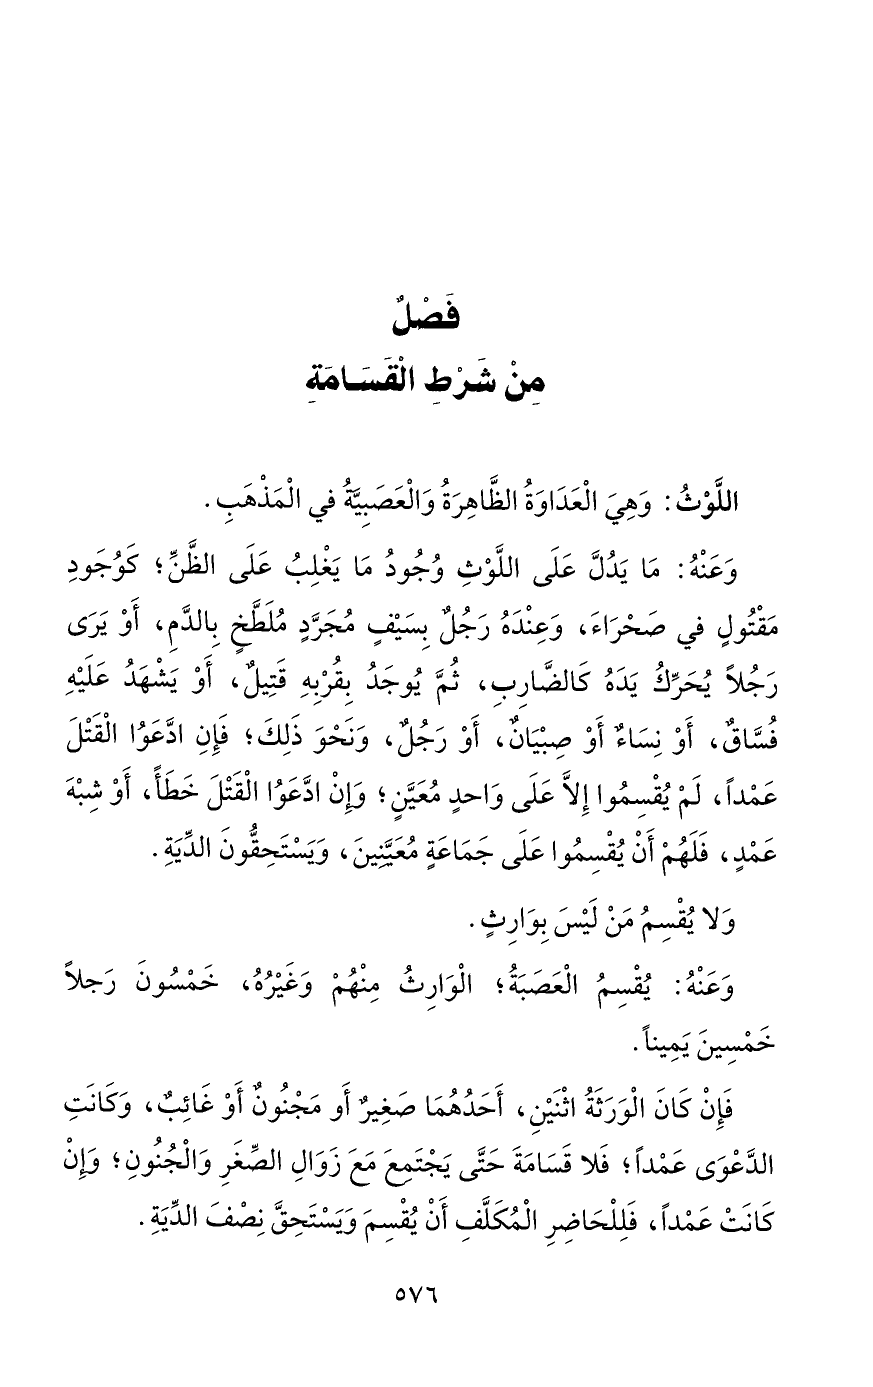 فَصْلٌ
مِنْ شَرْطِ الْقَسَامَةِ
اللَّوْثُ: وَهِيَ الْعَدَاوَةُ الظَّاهِرَةُ وَالْعَصَبِيَّةُ في الْمَذْهَبِ.
وَعَنْهُ: مَا يَدُلَّ عَلَى اللَّوْثِ وُجُودُ مَا يَغْلِبُ عَلَى الظَّنِّ؛ كَوُجُودِ
مَقْتُولٍ في صَحْرَاءَ، وَعِنْدَهُ رَجُلٌ بِسَيْفٍ مُجَرَّدٍ مُلَطَّخٍ بِالدَّمِ، أَوْ يَرَى
رَجُلاً يُحَرِّكُ يَدَهُ كَالضَّارِبِ، ثُمَّ يُوجَدُ بِقُرْبِهِ قَتِيلٌ، أَوْ يَشْهَدُ عَلَيْهِ
فُسَّاقٌ، أَوْ نِسَاءٌ أَوْ صِبْيَانٌ، أَوْ رَجُلٌ، وَنَحْوَ ذَلِكَ؛ فَإِنِ ادَّعَوُا الْقَتْلَ
عَمْداً، لَمْ يُقْسِمُوا إِلاَّ عَلَى وَاحدٍ مُعَيَّنٍ؛ وَإِنْ ادَّعَوُا الْقَتْلَ خَطَأً، أَوْ شِبْهَ
عَمْدٍ، فَلَهُمْ أَنْ يُقْسِمُوا عَلَى جَمَاعَةٍ مُعَيَّنِينَ، وَيَسْتَحِقُّونَ الدِّيَةِ.
وَلا يُقْسِمُ مَنْ لَيْسَ بِوَارِثٍ.
وَعَنْهُ: يُقْسِمُ الْعَصَبَةُ؛ الْوَارِثُ مِنْهُمْ وَغَيْرُهُ، خَمْسُونَ رَجلاً
خَمْسِينَ يَمِيناً.
فَإِنْ كَانَ الْوَرَثَةُ اثْنَيْنِ، أَحَدُهُمَا صَغِيرٌ أَو مَجْنُونٌ أَوْ غَائِبٌ، وَكَانَتِ
الدَّعْوَى عَمْداً؛ فَلا قَسَامَةَ حَتَّى يَجْتَمِعَ مَعَ زَوَالِ الصِّغَرِ وَالْجُنُونِ؛ وَإِنْ
كَانَتْ عَمْداً، فَلِلْحَاضِرِ الْمُكَلَّفِ أَنْ يُقْسِمَ وَيَسْتَحِقَّ نِصْفَ الدِّيَةِ.
٥٧٦